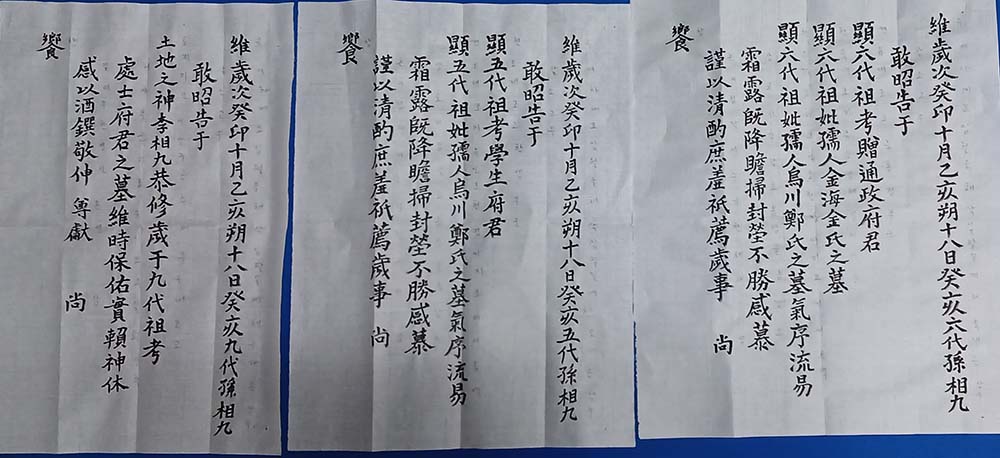 維歲次癸卯十月乙亥朔十八日癸亥六代孫相九
敢昭告于
顯六代祖考贈通政府君
顯六代祖妣孺人金海金氏之墓
顯六代祖妣孺人烏川鄭氏之墓氣序流易
霜露既降瞻掃封塋不勝感慕
謹以清酌庶羞祇薦歲事 尚
饗
維歲次癸卯十月乙亥朔十八日癸亥五代孫相九
敢昭告于
顯五代祖考學生府君
顯五代祖妣孺人烏川鄭氏之墓氣序流易
霜露既降瞻掃封塋不勝感慕
謹以清酌庶羞祇薦歲事 尚
饗
維歲次癸卯十月乙亥朔十八日癸亥九代孫相九
敢昭告于
土地之神李相九恭修歲于九代祖考
處士府君之墓維時保佑實賴神休
感以酒饌敬伸 奠獻 尚
饗